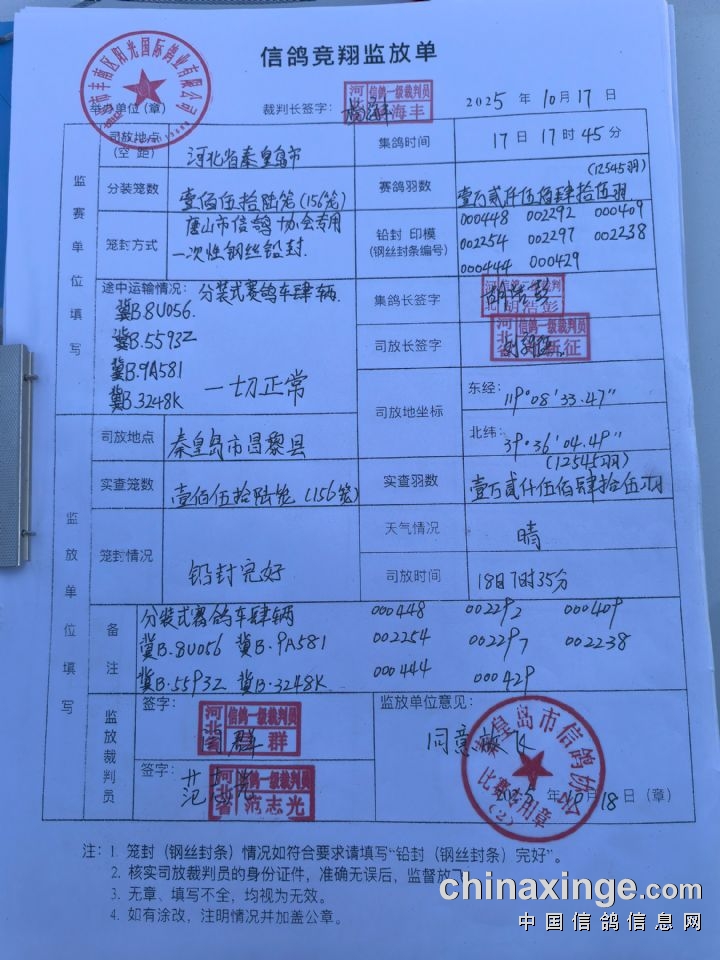 信鸽竞翔监放单
市丰南区阳光国际鸽业有限公司
举办单位(章)
裁判长签字:
河 信鸽一级裁判员
海丰
2025 年 10 月 17 日
监赛单位填写
司放地点
(空 距)
河北省秦皇岛市
集鸽时间
17 日 17 时 45 分
分装笼数
壹佰伍拾陆笼(156笼)
赛鸽羽数
(12545羽)
壹万贰仟伍佰肆拾伍羽
笼封方式
唐山市信鸽协会专用
一次性钢丝铅封.
铅封 印模
(钢丝封条编号)
000448 002292 000409
002254 002297 002238
000444 000429
途中运输情况: 分装式赛鸽车肆辆.
冀B.8U056.
冀B.5593Z
冀B.9A581
冀B.3248K
一切正常
集鸽长签字
信鸽一级裁判
司放长签字
河北省 信鸽一级裁判员
征
司放地坐标
东经:
119°08′33.47″
北纬:
39°36′04.49″
监放单位填写
司放地点
秦皇岛市昌黎县
实查笼数
壹佰伍拾陆笼(156笼)
实查羽数
(12545羽)
壹万贰仟伍佰肆拾伍羽
笼封情况
铅封完好
天气情况
晴
司放时间
18日7时35分
备注
分装式赛鸽车肆辆
冀B.8U056 冀B.9A581
冀B.5593Z 冀B.3248K
000448 002292 000409
002254 002297 002238
000444 000429
监放裁判员
签字:
河北省 信鸽一级裁判员
群
签字:
范志光
河北省 信鸽一级裁判员
范志光
监放单位意见:
同意放飞
秦皇岛市信鸽协会
比赛专用章
(2)
2025 年 10 月 18 日(章)
注: 1. 笼封(钢丝封条)情况如符合要求请填写“铅封(钢丝封条)完好”。
2. 核实司放裁判员的身份证件,准确无误后,监督放飞
3. 无章、填写不全,均视为无效。
4. 如有涂改,注明情况并加盖公章。
chinaxinge.com
中国信鸽信息网